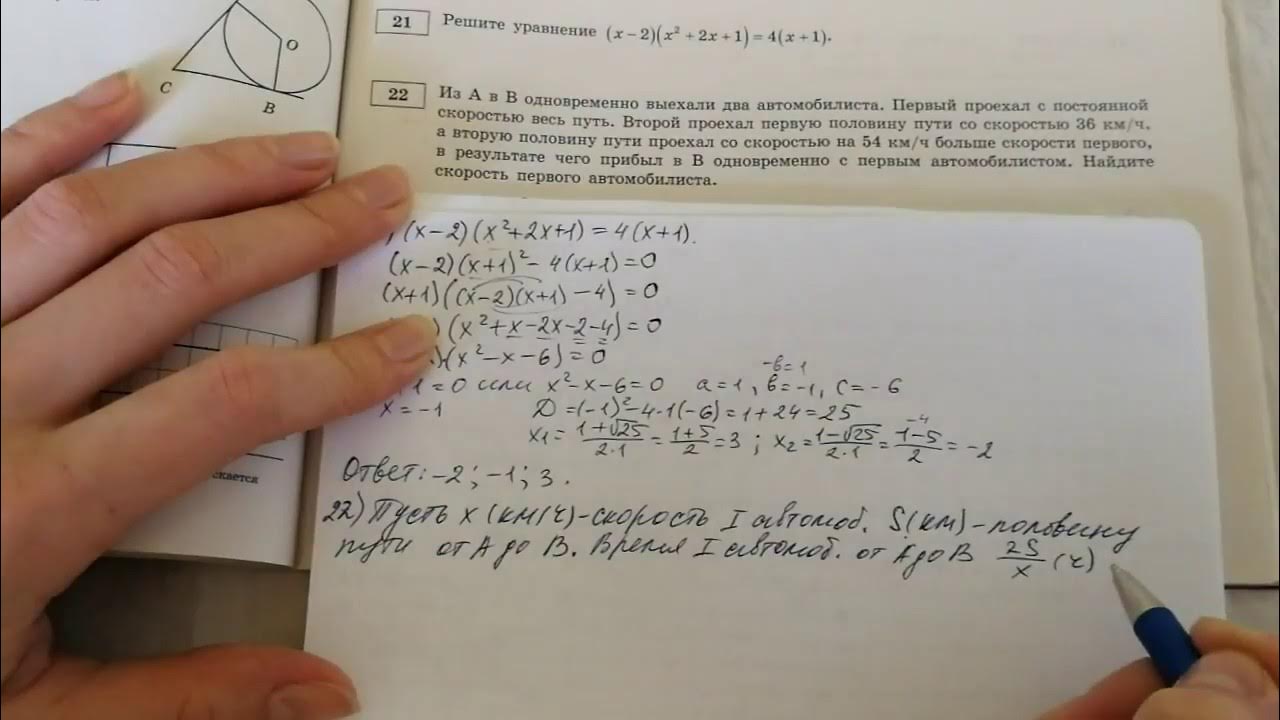 O
C
B
скается
21 Решите уравнение (x − 2)(x² + 2x + 1) = 4(x + 1).
22 Из А в В одновременно выехали два автомобилиста. Первый проехал с постоянной
скоростью весь путь. Второй проехал первую половину пути со скоростью 36 км/ч,
а вторую половину пути проехал со скоростью на 54 км/ч больше скорости первого,
в результате чего прибыл в В одновременно с первым автомобилистом. Найдите
скорость первого автомобилиста.
(x−2)(x²+2x+1)=4(x+1).
(x−2)(x+1)²−4(x+1)=0
(x+1)((x−2)(x+1)−4)=0
)(x²+x−2x−2−4)=0
)(x²−x−6)=0
1=0 или x²−x−6=0 a=1, в=−1, c=−6
−в=1
x=−1 D=(−1)²−4·1(−6)=1+24=25
x₁=(1+√25)/(2·1)=(1+5)/2=3; x₂=(1−√25)/(2·1)=(1−5)/2=−2
−4
Ответ: −2; −1; 3.
22) Пусть x(км/ч)-скорость I автомоб. S(км)-половину
пути от А до В. Время I автомоб. от А до В 2S/x (ч)